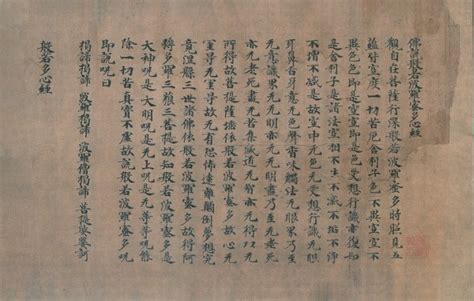 佛說般若波羅蜜多心經
觀自在菩薩行深般若波羅蜜多時照見五
蘊皆空度一切苦厄舍利子色不異空空不
異色色即是空空即是色受想行識亦復如
是舍利子是諸法空相不生不滅不垢不淨
不增不減是故空中无色无受想行識无眼
耳鼻舌身意无色聲香味觸法无眼界乃至
无意識界无无明亦无无明盡乃至无老死
亦无老死盡无苦集滅道无智亦无得以无
所得故菩提薩埵依般若波羅蜜多故心无
罣导无罣导故无有恐怖遠離顛倒夢想究
竟涅槃三世諸佛依般若波羅蜜多故得阿
耨多羅三藐三菩提故知般若波羅蜜多是
大神呪是大明呪是无上呪是无等等呪能
除一切苦真實不虛故說般若波羅蜜多呪
即說呪曰
揭諦揭諦 波羅揭諦 波羅僧揭諦 菩提薩婆訶
般若多心經